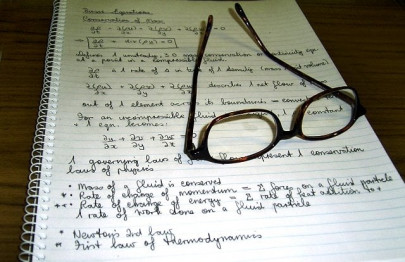 Equations
Conservation of Mass
∂ρ/∂t + ∂(ρu)/∂x + ∂(ρv)/∂y + ∂(ρw)/∂z = 0
⇒ ∂ρ/∂t + div(ρu) = 0
Defines 1 unsteady, 3D conservation or continuity eqn
at a point in a compressible fluid.
∂ρ/∂t = 1 rate of Δ in t of 1 density (mass
∂(ρu)/∂x + ∂(ρv)/∂y + ∂(ρw)/∂z describe 1 net flow of
out of 1 element across its boundaries =
For an incompressible fluid constant
+ 1 eqn becomes:
∂u/∂x + ∂v/∂y + ∂w/∂z
1 governing laws of flow represent 1 conservation
laws of physics
• Mass of a fluid is conserved
Rate of change of momentum = Σ forces on a fluid particle
Rate of change of energy = Σ rate of heat addition to +
1 rate of work done on a fluid particle
* Newton's 2nd law
First law of thermodynamics